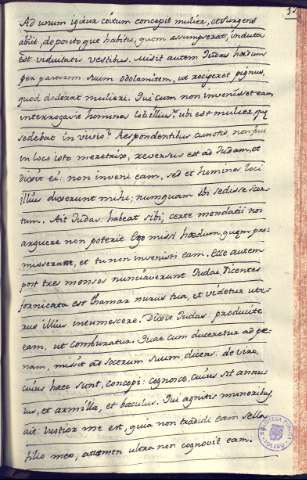 Ad unum igitur coitum concepit mulier, et surgens
abiit, depositoque habitu, quem assumpserat, induta
est viduitatis vestibus. Misit autem Judas hœdum
per pastorem suum odolamitem, ut reciperet pignus,
quod dederat mulieri. Qui cum non invenisset eam
interrogavit homines loci illius: ubi est mulier quę
sedebat in bivio? Respondentibus cunctis non fuit
in loco isto meretrix, reversus est ad Judam, et
dixit ei: non inveni eam, sed et homines loci
illius dixerunt mihi; numquam ibi sedisse scor-
tum. Ait Judas: habeat sibi, certe mendatii nos
arguere non poterit Ego misi hœdum, quem pro-
misseram, et tu non invenisti eam. Ecce autem
post tres menses nuntiaverunt Judæ dicentes
fornicata est Thamar nurus tua, et videtur ute-
rus illius intumescere. Dixit Judas producite
eam, ut comburatur. Quæ cum duceretur ad pœ-
nam, misit ad socerum suum dicens. de viro,
cuius hæc sunt, concepi: cognosce, cuius sit annu-
lus, et armilla, et baculus. Qui agnitis muneribus
ait: iustior me est, quia non tradidi eam sella
filio meo, attamen ultra non cognovit eam.